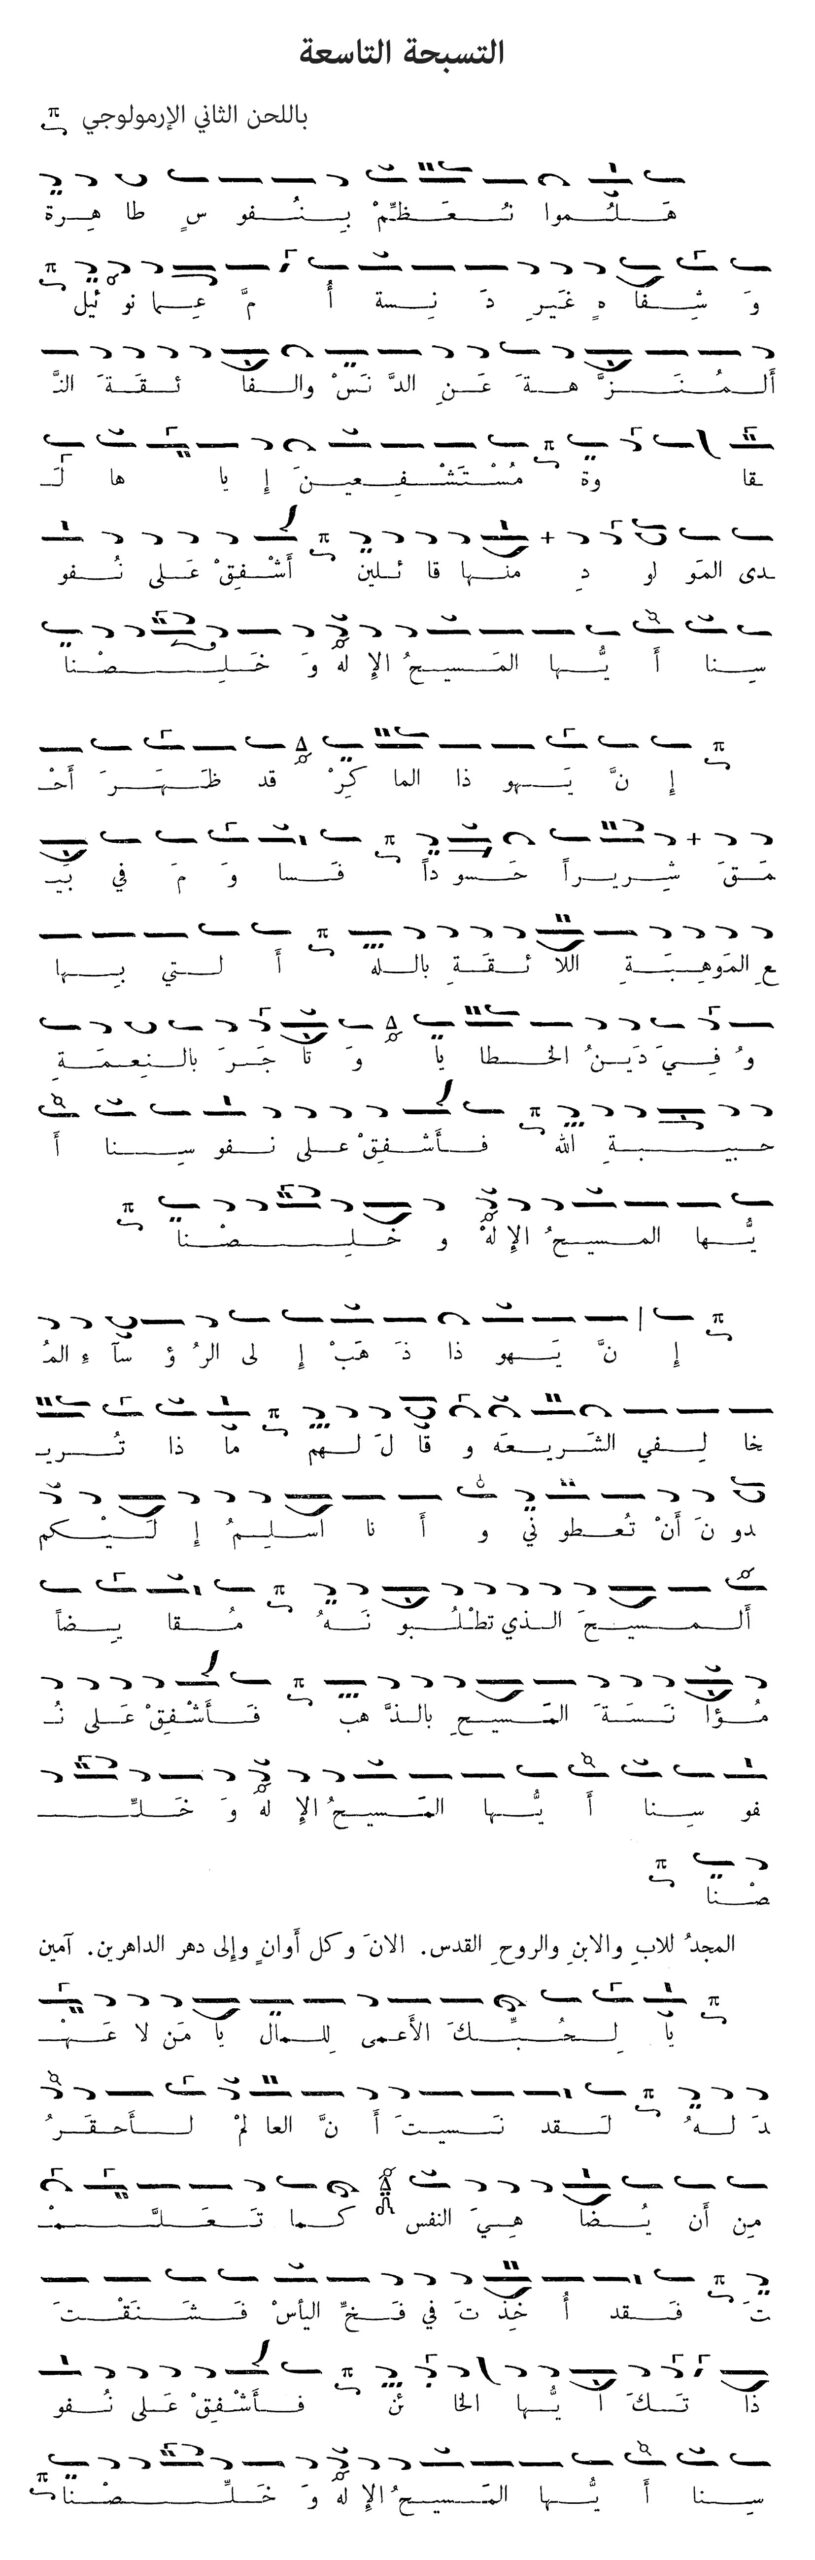 التسبحة التاسعة
باللحن الثاني الإرمولوجي
هَلُموا نُعَظِّمْ بِنُفوسٍ طاهِرة
وَشِفاهٍ غَيرِ دَنِسة أُمَّ عِمانوئيل
أَلمُنَزَّهةَ عَنِ الدَّنَسْ والفائقَةَ النَّـ
ـقاوة مُسْتَشْفِعينَ إياها لَـ
ـدى المَولودِ منها قائلين أَشْفِقْ عَلى نُفو
سِنا أَيُّها المَسيحُ الإلهْ وَخَلِصْنا
إنَّ يَهوذا الماكِرْ قد ظَهَرَ أَحْـ
ـمَقَ شِريراً حَسوداً فَساوَمَ في بَيـ
ـعِ المَوهِبَةِ اللائقَةِ بالله أَلتي بِها
وُفِيَ دَينُ الخطايا وَتاجَرَ بالنِعمَةِ
حبيبةِ الله فأَشْفِقْ على نفوسِنا أَ
يُّها المسيحُ الإلهْ وخلِصْنا
إنَّ يَهوذا ذَهَبْ إلى الرُؤسآءِ المُـ
ـخالِفي الشَريعَه وقالَ لهم ماذا تُريـ
ـدونَ أَنْ تُعطوني وأَنا اسلِمُ إلَيْكم
أَلمسيحَ الذي تطْلُبونَهُ مُقايِضاً
مُؤانَسَةَ المَسيحِ بالذَّهب فَأَشْفِقْ عَلى نُـ
ـفوسِنا أَيُّها المَسيحُ الإلهْ وَخَلِّـ
ـصْنا
المجدُ للابِ والابنِ والروحِ القدس. الانَ وكل أَوانٍ وإلى دهر الداهرين. آمين
يا لِحُبِّكَ الأَعمى لِلمال يا مَن لا عَهْـ
ـدَ لهُ لَقد نَسيتَ أَنَّ العالمْ لأَحقَرُ
مِن أَن يُضاهِيَ النفس كما تَعَلَّمْـ
ـتَ فَقد أُخِذتَ في فَخِّ اليأسْ فَشَنَقْتَ
ذاتَكَ ايُّها الخائن فأَشْفِقْ عَلى نُفو
سِنا أَيُّها المَسيحُ الإلهْ وَخَلِّصْنا